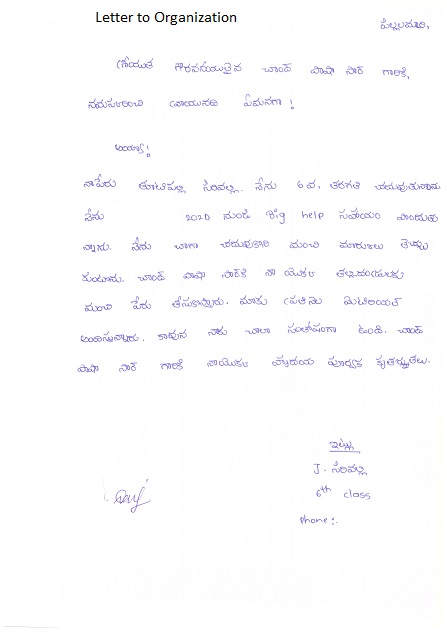 Letter to Organization
పిల్లలమర్రి,
గౌరవనీయులైన చాంద్ పాషా సార్ గారికి,
నమస్కరించి వ్రాయునది ఏమనగా !
అయ్యా!
నాపేరు సిరివల్లి. నేను 6 వ. తరగతి చదువుతున్నాను
నేను 2020 నుండి Big help సహాయం పొందుతు
న్నాను. నేను బాగా చదువుకొని మంచి మార్కులు తెచ్చు
కుంటాను. చాంద్ పాషా సార్‌కి నా యొక్క తల్లిదండ్రులకు
మంచి పేరు తీసుకొస్తాను. మాకు ప్రతి సం మెటీరియల్
అందిస్తున్నారు. కావున నాకు చాలా సంతోషంగా ఉంది. చాంద్
పాషా సార్ గారికి నాయొక్క హృదయ పూర్వక కృతజ్ఞతలు.
ఇట్లు
J. సిరివల్లి
6th class
Phone:.